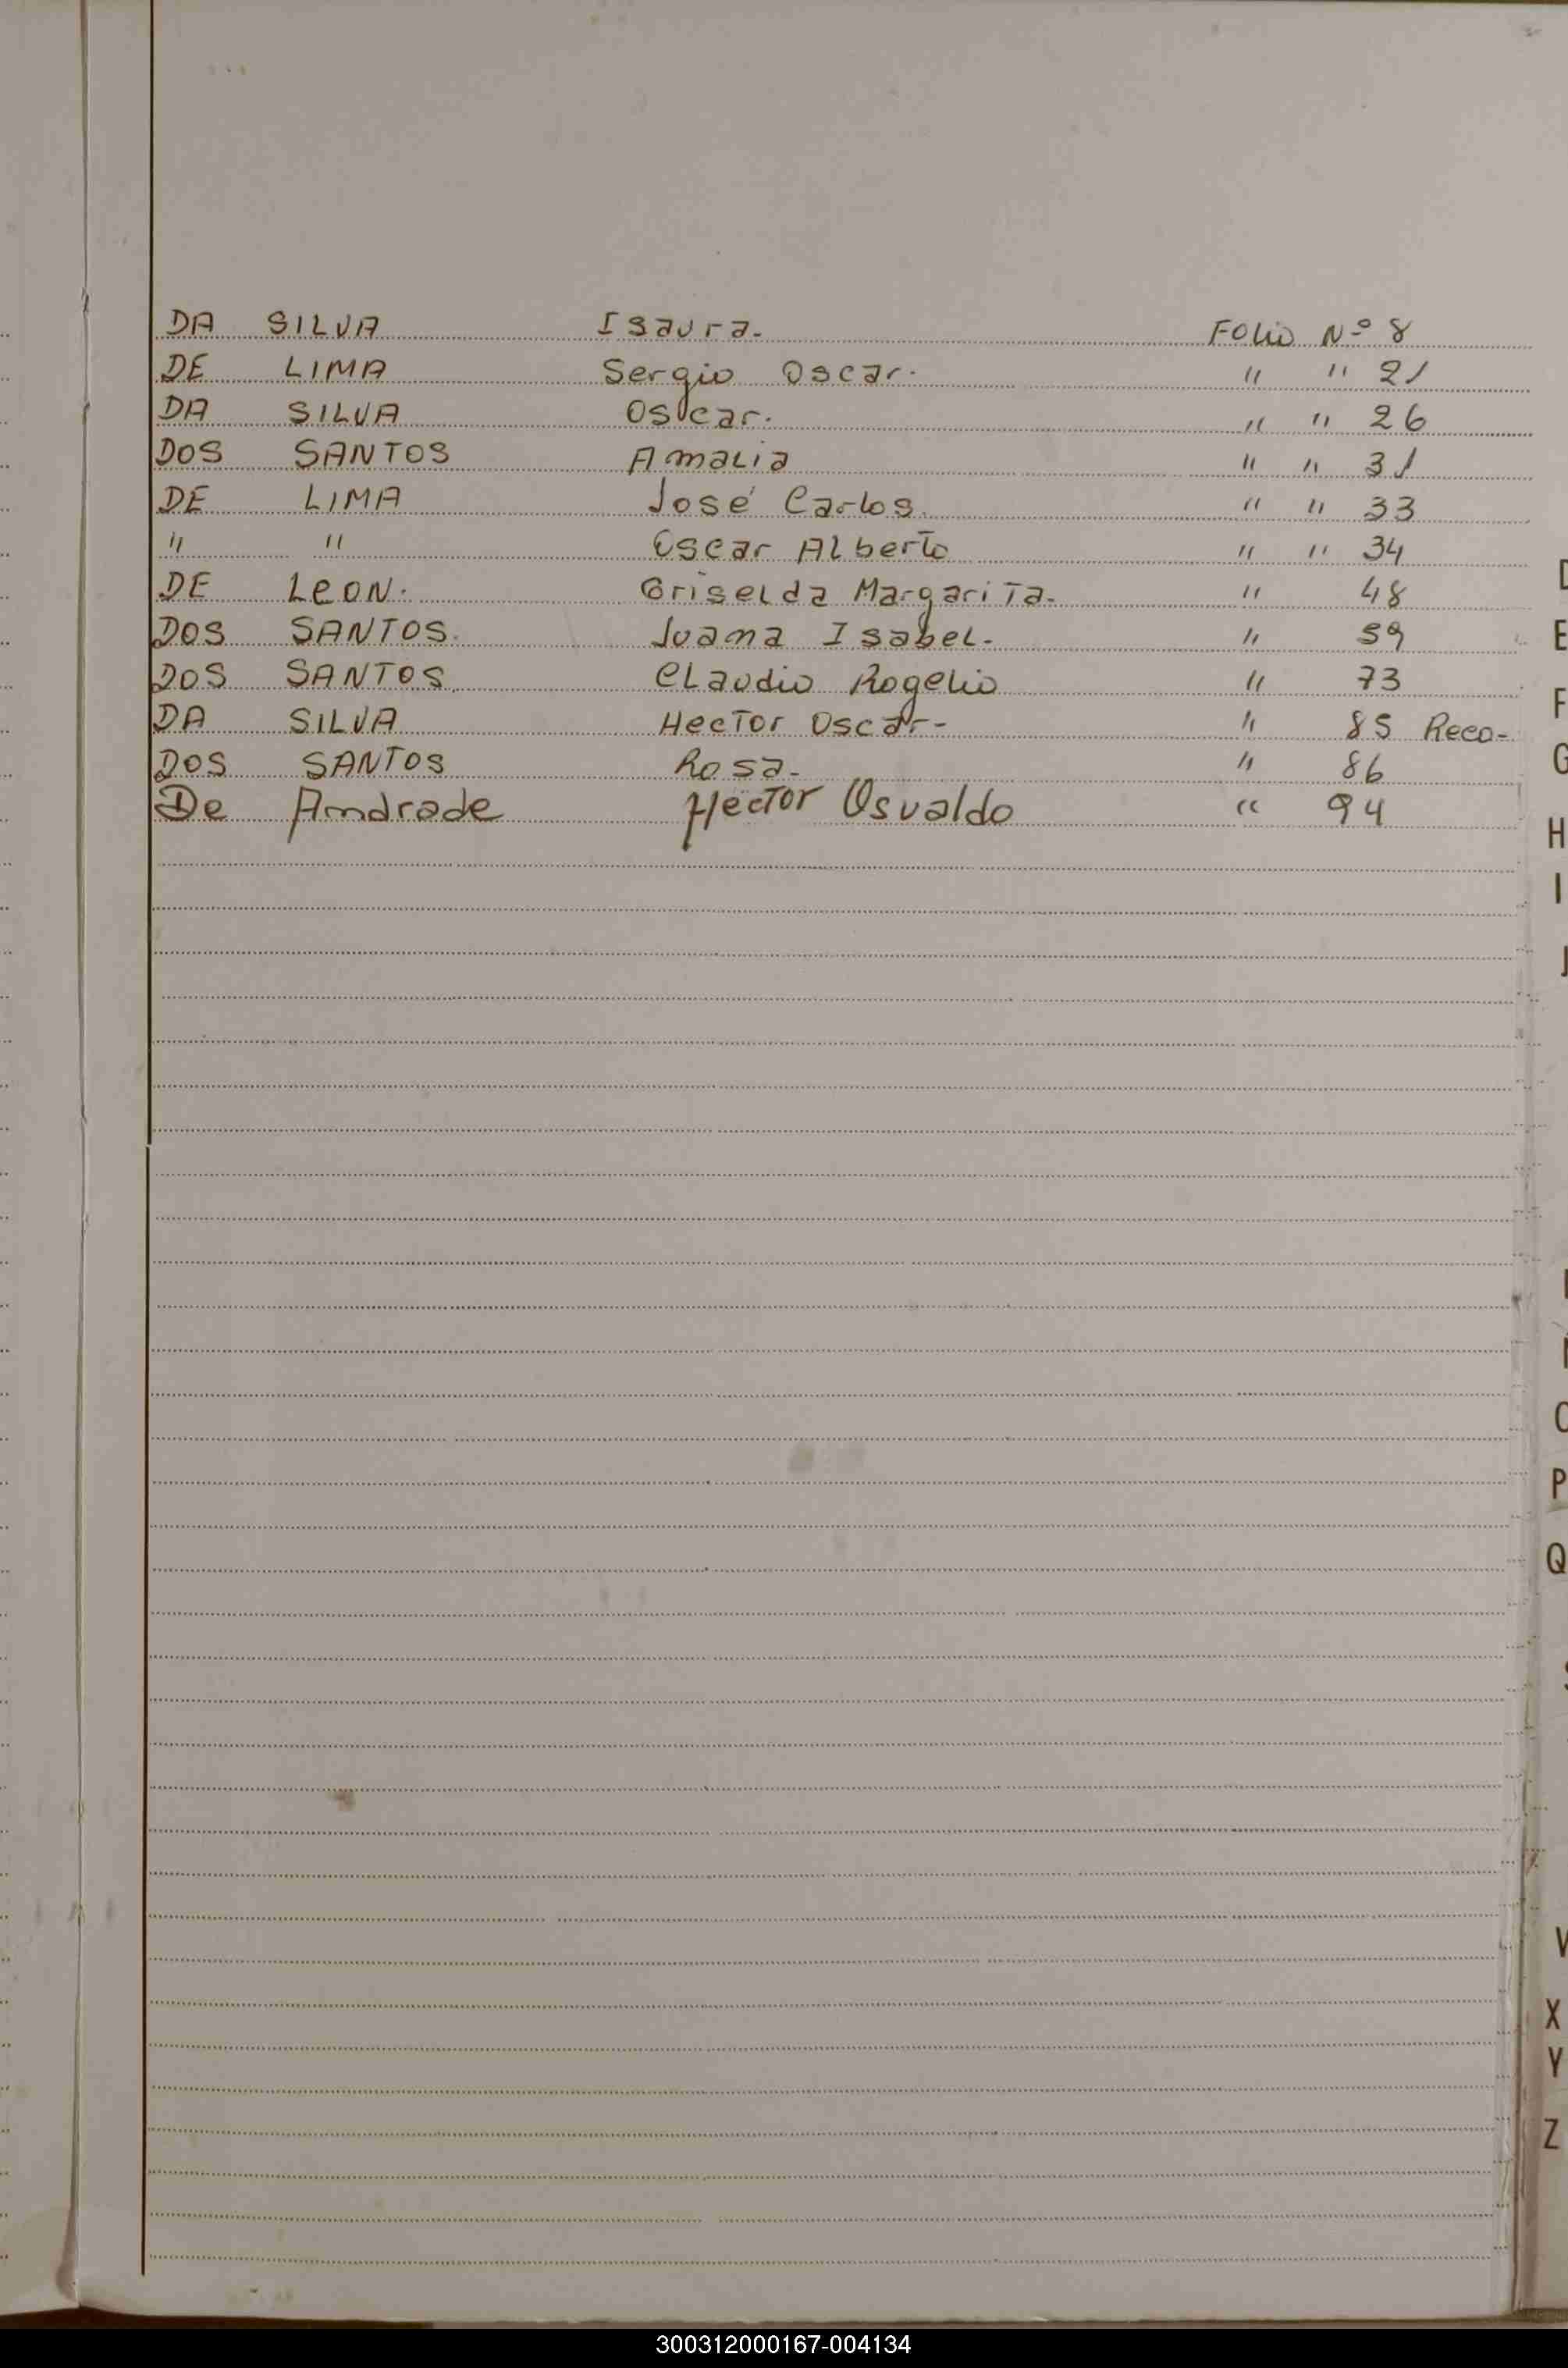 DA SILVA Isaura. Folio Nº 8
DE LIMA Sergio Oscar. " " 21
DA SILVA Oscar. " " 26
DOS SANTOS Amalia " " 31
DE LIMA José Carlos. " " 33
" " Oscar Alberto " " 34
DE LEON. Griselda Margarita. " 48
DOS SANTOS. Juana Isabel. " 59
DOS SANTOS. Claudio Rogelio " 73
DA SILVA Hector Oscar- " 85 Reco-
DOS SANTOS Rosa- " 86
De Andrade Hector Osvaldo " 94
E
F
G
H
I
J
P
Q
V
X
Y
Z
300312000167-004134